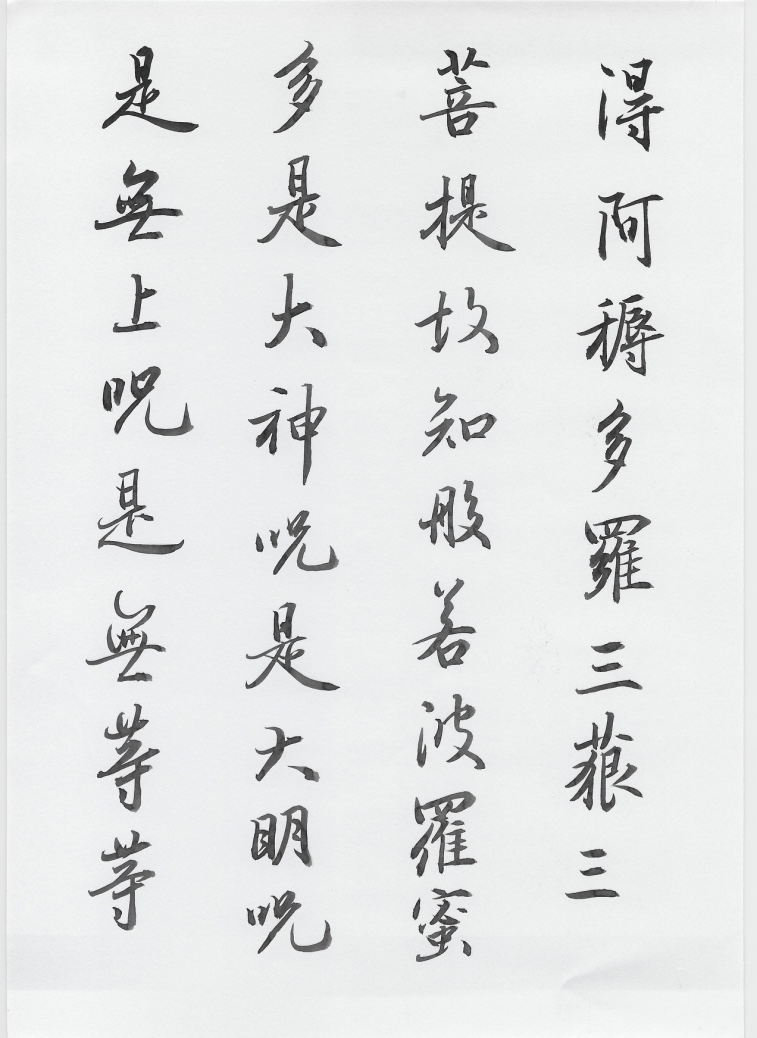 得阿耨多羅三藐三
菩提故知般若波羅蜜
多是大神咒是大明咒
是無上咒是無等等